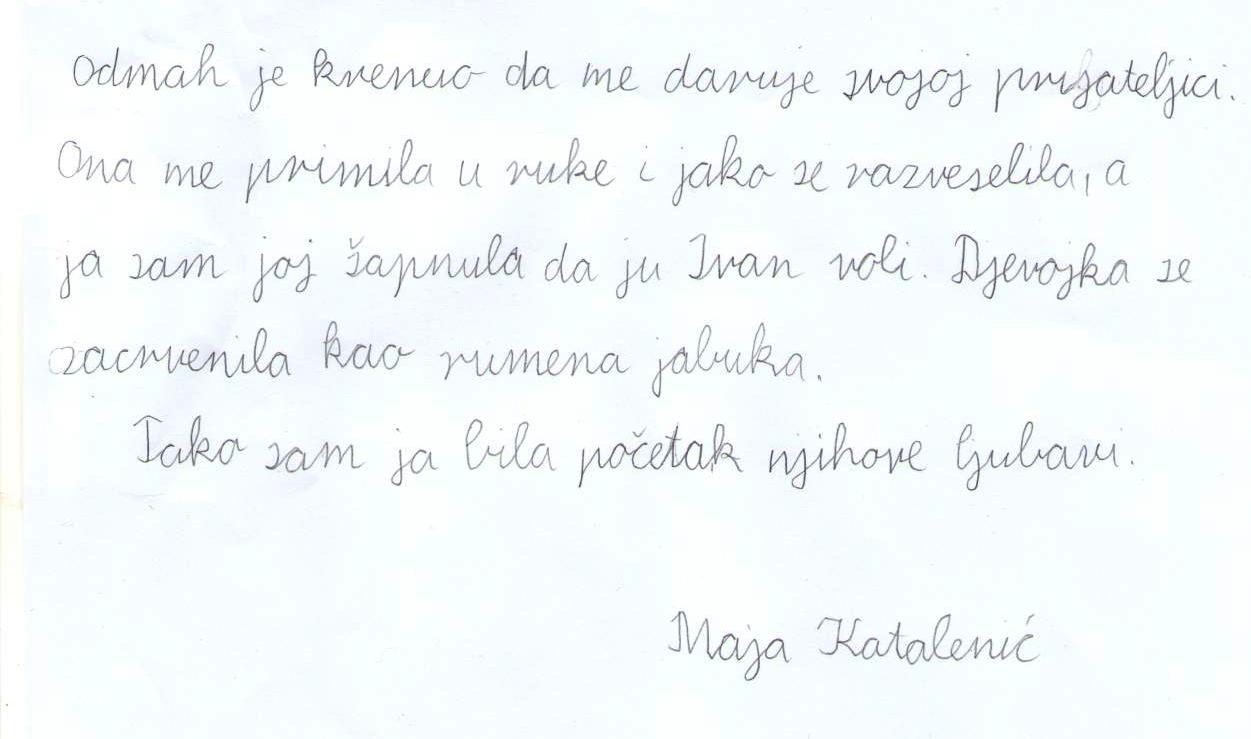 Odmah je krenuo da me daruje svojoj prijateljici.
Ona me primila u ruke i jako se razveselila, a
ja sam joj šapnula da ju Ivan voli. Djevojka se
zacrvenila kao rumena jabuka.
Tako sam ja bila početak njihove ljubavi.
Maja Katalenić